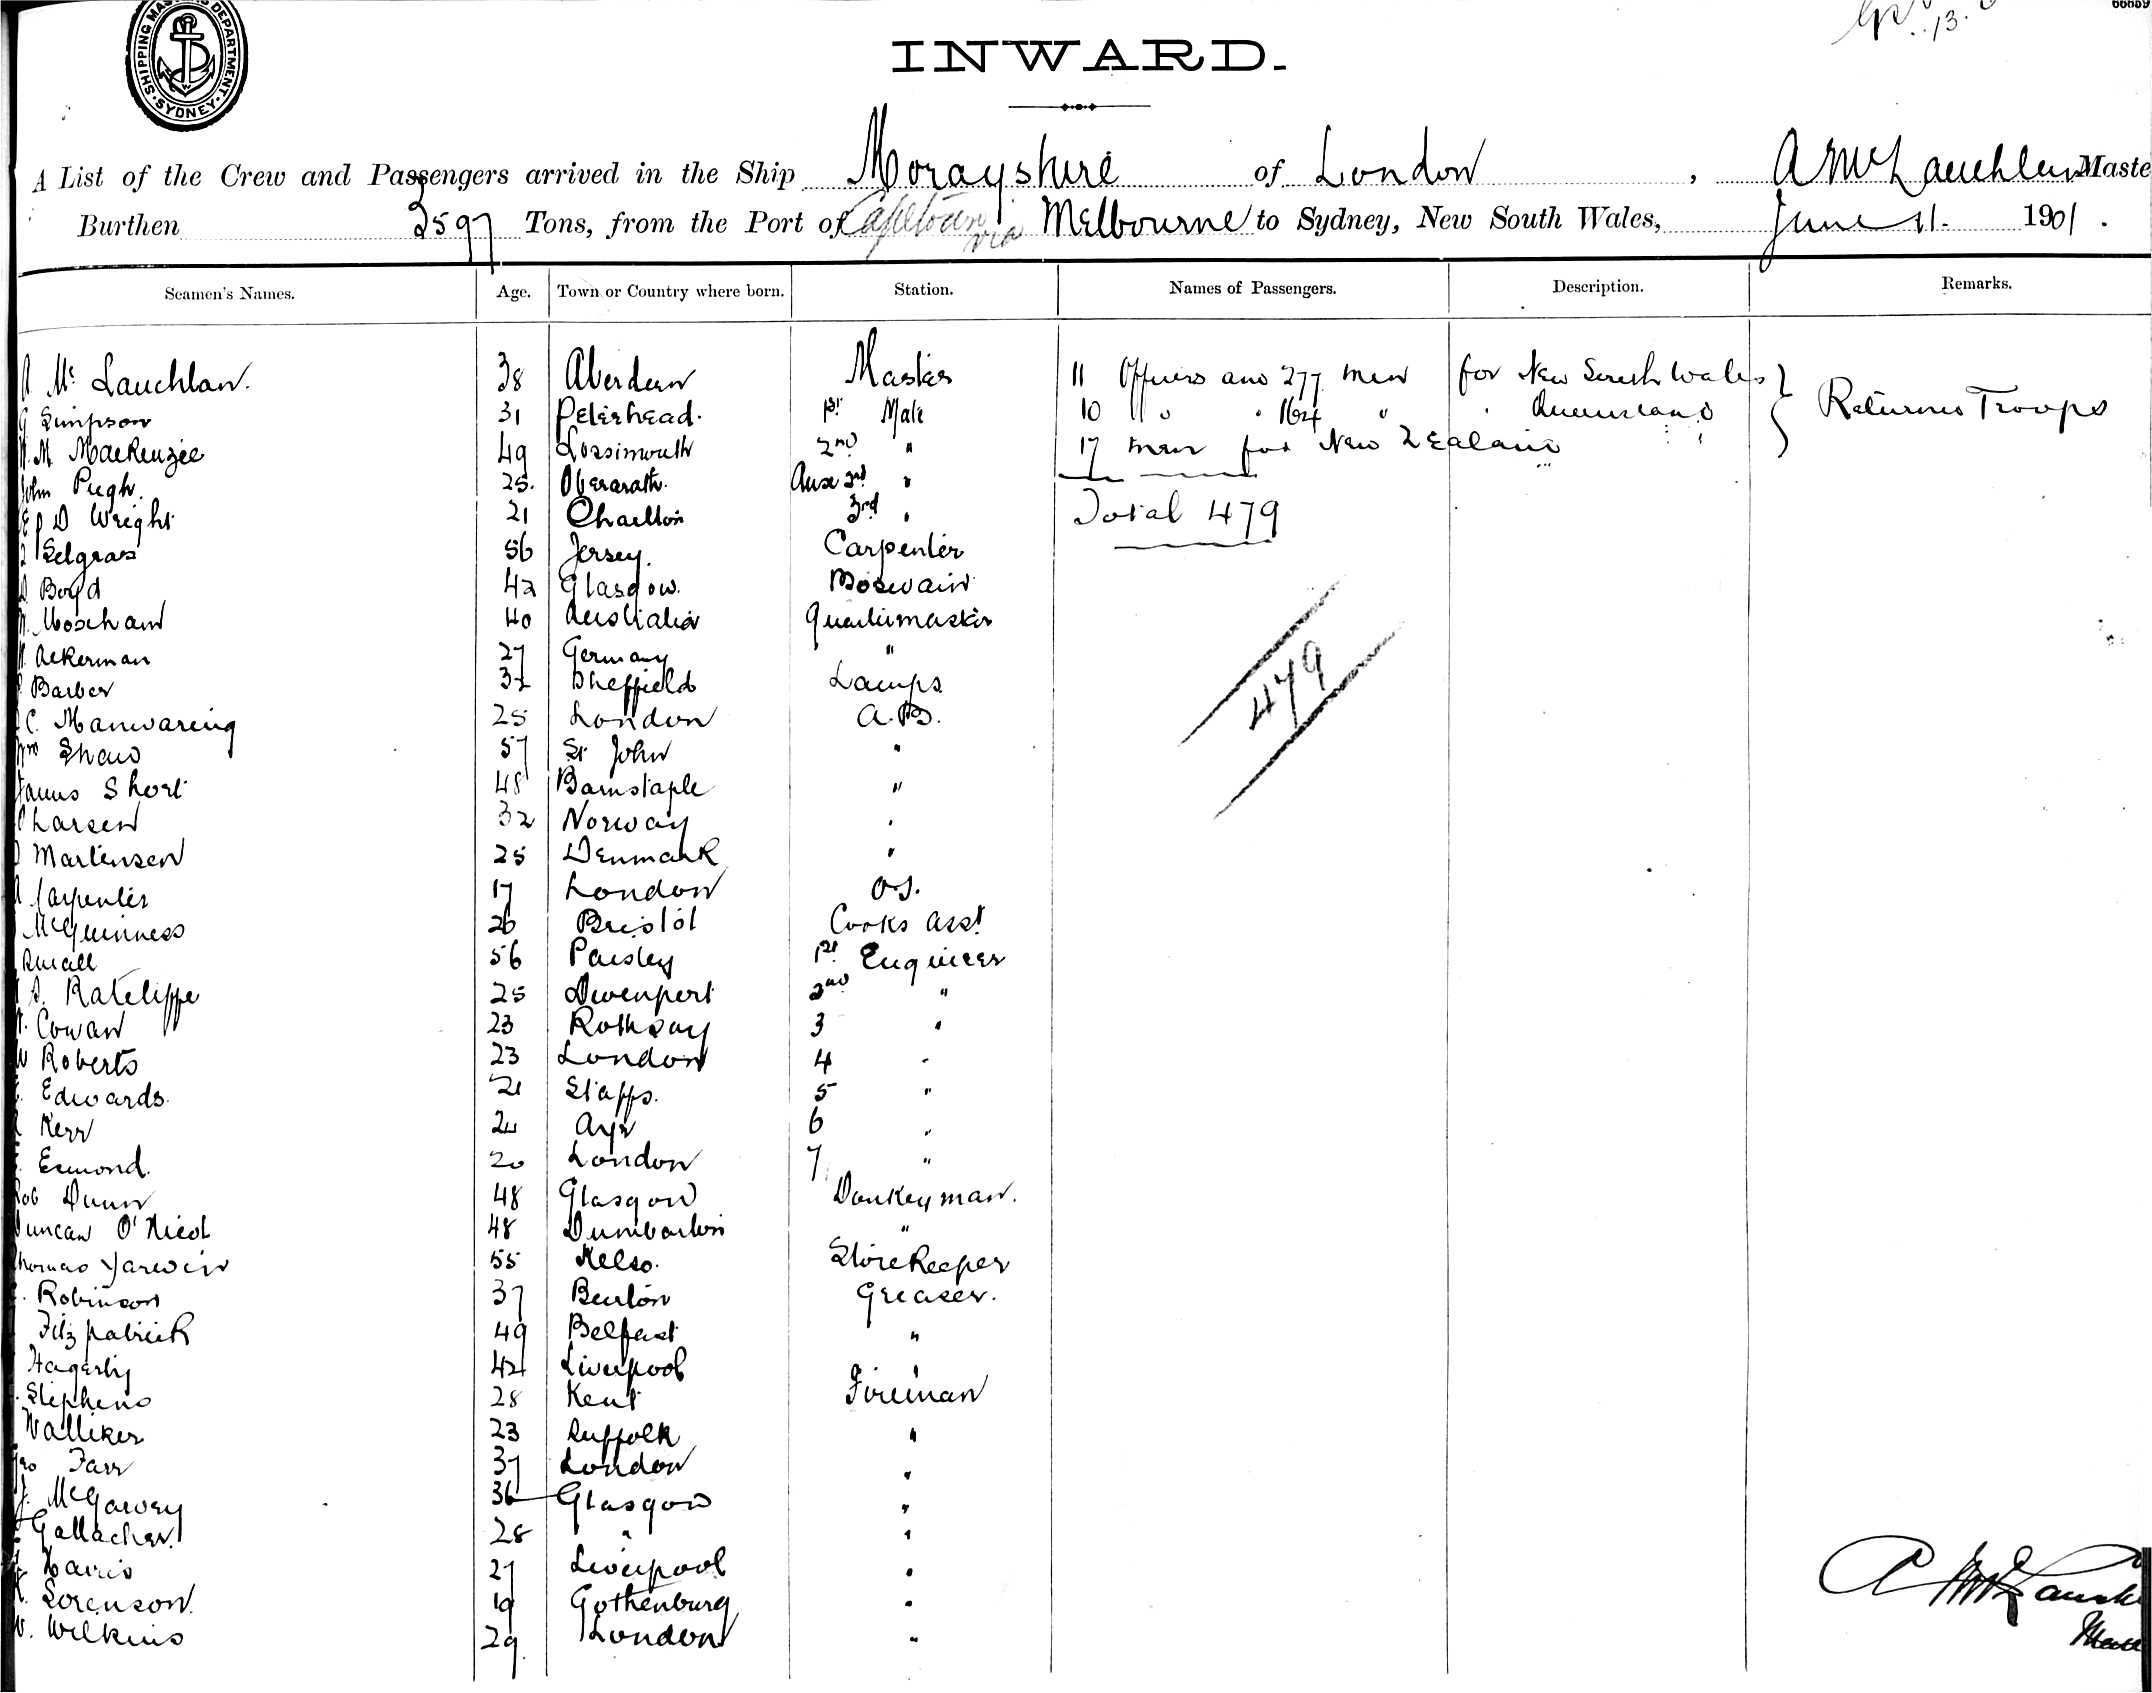 SHIPPING MASTERS DEPARTMENT. SYDNEY.
66659
13.
INWARD.
A List of the Crew and Passengers arrived in the Ship Morayshire of London, A McLauchlan Maste
Burthen 3597 Tons, from the Port of Capetown via Melbourne to Sydney, New South Wales, June 11. 1901.
Seamen's Names. Age. Town or Country where born. Station. Names of Passengers. Description. Remarks.
A Mc Lauchlan. 38 Aberdeen Master 11 Officers and 277 men for New South Wales } Returned Troops
G Simpson 31 Peterhead. 1st Mate 10 " " 164 " " Queensland
M MacKenzie 49 Lossimouth 2nd " 17 men for New Zealand
John Pugh. 25. Aux 3rd "
D Wright 21 Charlton 3rd " Total 479
Selgras 56 Jersey. Carpenter
Boyd 42 Glasgow. Boswain
Moxham 40 Australia Quartermaster
Ackerman 27 Germany "
Barber 32 Sheffield Lamps
C. Manwaring 25 London A.B. 479
Wm Shaw 57 St John "
James Short 48 Barnstaple "
Larsen 32 Norway "
Martensen 25 Denmark "
A Carpenter 17 London O.S.
McGuinness 26 Bristol Cooks Asst
56 Paisley 1st Engineer
S. Ratcliffe 25 Devenport 2nd "
Cowan 23 Rothsay 3 "
W Roberts 23 London 4 "
Edwards. 21 Staffs. 5 "
Kerr 24 Ayr 6 "
Esmond. 20 London 7 "
Rob Dunn 48 Glasgow Donkeyman.
Duncan O'Nicol 48 Dumbarton "
Thomas Yarwin 55 Kelso. Storekeeper
Robinson 37 Burton Greaser.
Fitzpatrick 49 Belfast "
Hagerty 42 Liverpool "
Stephens 28 Kent Fireman
Walliker 23 Suffolk "
Geo Farr 37 London "
J. McGarvey 36 Glasgow "
Gallacher. 28 " "
Harris 27 Liverpool "
Sorenson. 19 Gothenburg "
W. Wilkins 29 London "
A McLauch